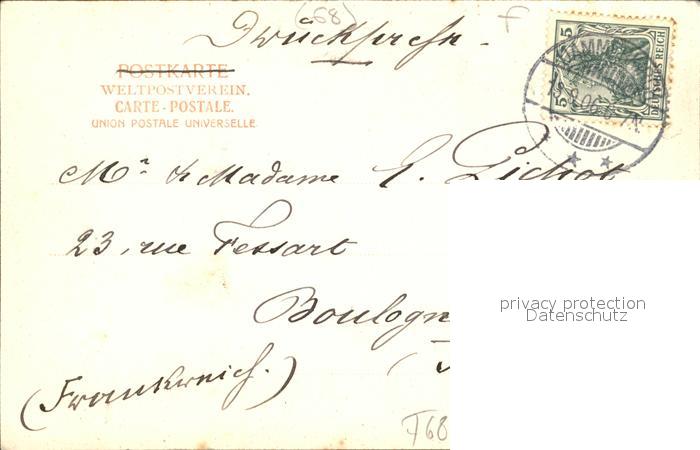 (68)
F
Drucksache.
POSTKARTE
WELTPOSTVEREIN.
CARTE-POSTALE.
UNION POSTALE UNIVERSELLE.
5 5
DEUTSCHES REICH
Mr & Madame E. Pichot
23, rue Fessart
Boulogn
privacy protection
Datenschutz
(Frankreich.)
F68